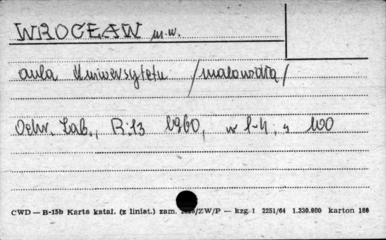 WROCŁAW m.w.
aula Uniwersytetu /malowidła/
Ochr. Zab., R:13 1960, nr 1-4, s 100
CWD — B-15b Karta katal. (z liniat.) zam. /ZW/P — kzg. 1 2251/64 1.330.000 karton 180